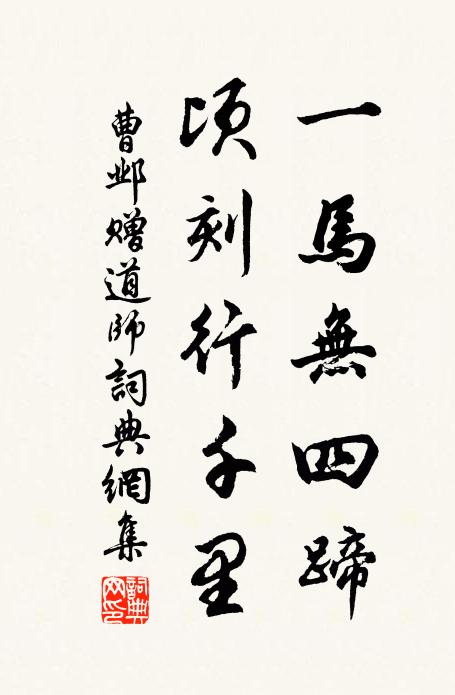 一馬無四蹄
頃刻行千里
曹邺贈道師詞典網集
詞典網印